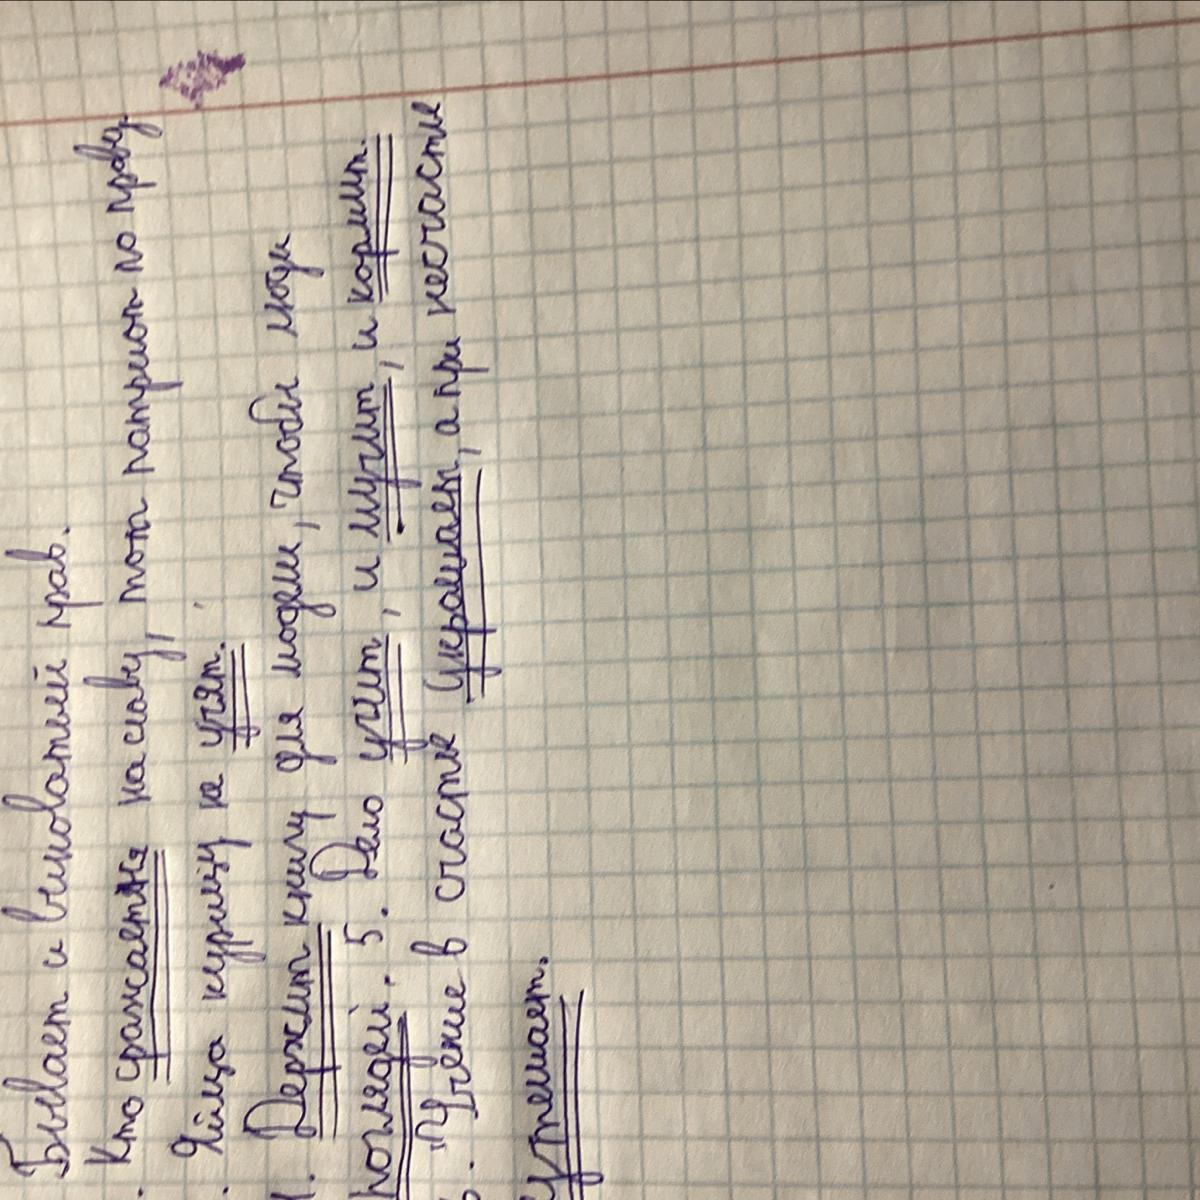 Бывает и виноватый прав.
. Кто сражается на славу, тот патриот по праву.
. Яйца курицу не учят.
4. Держит книгу для людей, чтобы люди
поглядей. 5. Дело учит, и мучит, и кормит.
6. Учение в счастье украшает, а при несчастье
утешает.